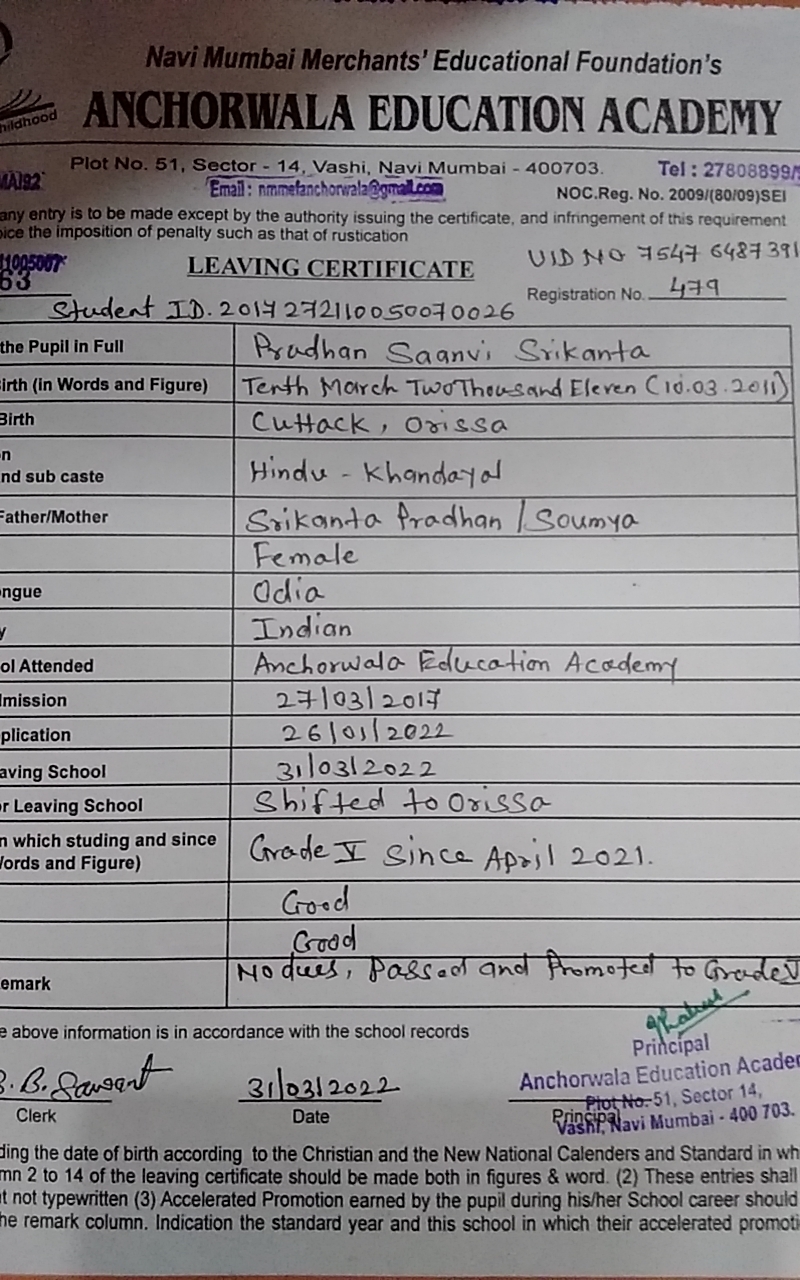 Navi Mumbai Merchants' Educational Foundation's
hildhood
ANCHORWALA EDUCATION ACADEMY
Plot No. 51, Sector - 14, Vashi, Navi Mumbai - 400703. Tel : 27808899/
Email : nmmefanchorwala@gmail.com
NOC.Reg. No. 2009/(80/09)SEI
any entry is to be made except by the authority issuing the certificate, and infringement of this requirement
ice the imposition of penalty such as that of rustication
UID NO 7547 6487391
63 LEAVING CERTIFICATE
Registration No. 479
Student ID. 2017272110050070026
the Pupil in Full Pradhan Saanvi Srikanta
irth (in Words and Figure) Tenth March Two Thousand Eleven (10.03.2011)
Birth Cuttack, Orissa
n
nd sub caste Hindu - Khandayal
Father/Mother Srikanta Pradhan / Soumya
Female
ongue Odia
y Indian
ol Attended Anchorwala Education Academy
dmission 27/03/2017
plication 26/01/2022
aving School 31/03/2022
r Leaving School Shifted to Orissa
n which studing and since
Words and Figure) Grade V Since April 2021.
Good
Good
emark No dues, Passed and Promoted to Grade V
e above information is in accordance with the school records
Principal
Anchorwala Education Acade
Plot No.-51, Sector 14,
Vashi, Navi Mumbai - 400 703.
S. B. Sawant 31/03/2022
Clerk Date Principal
ding the date of birth according to the Christian and the New National Calenders and Standard in wh
mn 2 to 14 of the leaving certificate should be made both in figures & word. (2) These entries shall
t not typewritten (3) Accelerated Promotion earned by the pupil during his/her School career should
he remark column. Indication the standard year and this school in which their accelerated promoti